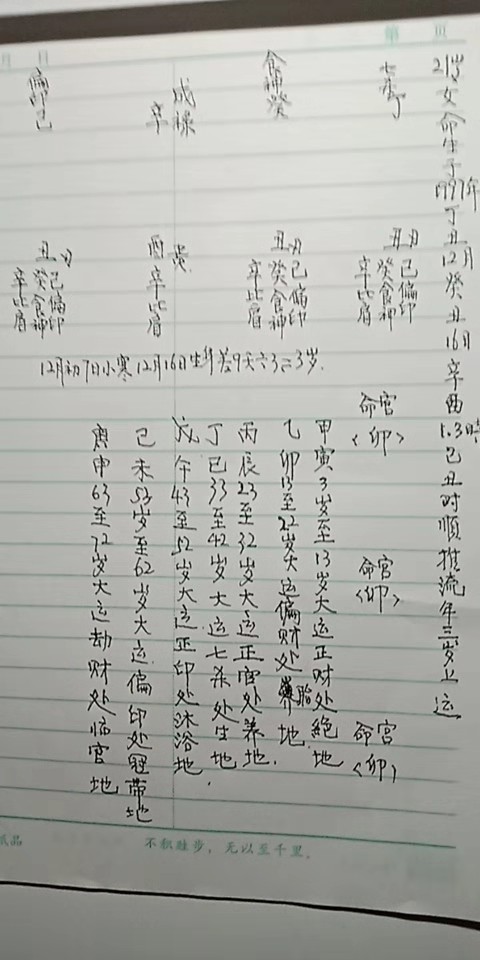 月 日
第 页
21岁女命生于1997年丁丑12月癸丑16日辛酉1.3时己丑时顺推流年三岁上运
七杀丁
食神癸
成禄
辛
偏印己
丑月
己偏印
癸食神
辛比肩
丑月
己偏印
癸食神
辛比肩
酉
辛比肩
丑月
己偏印
癸食神
辛比肩
12月初7日小寒12月16日生年差9天
命宫
<卯>
命宫
<卯>
命宫
<卯>
甲寅3岁至13岁大运正财处绝地
乙卯13至22岁大运偏财处胎地.
丙辰23至32岁大运正官处养地.
丁巳33至42岁大运七杀处生地.
戊午43至52岁大运正印处沐浴地
己未53岁至62岁大运偏印处冠带地
庚申63至72岁大运劫财处临官地
纸品
不积跬步，无以至千里.